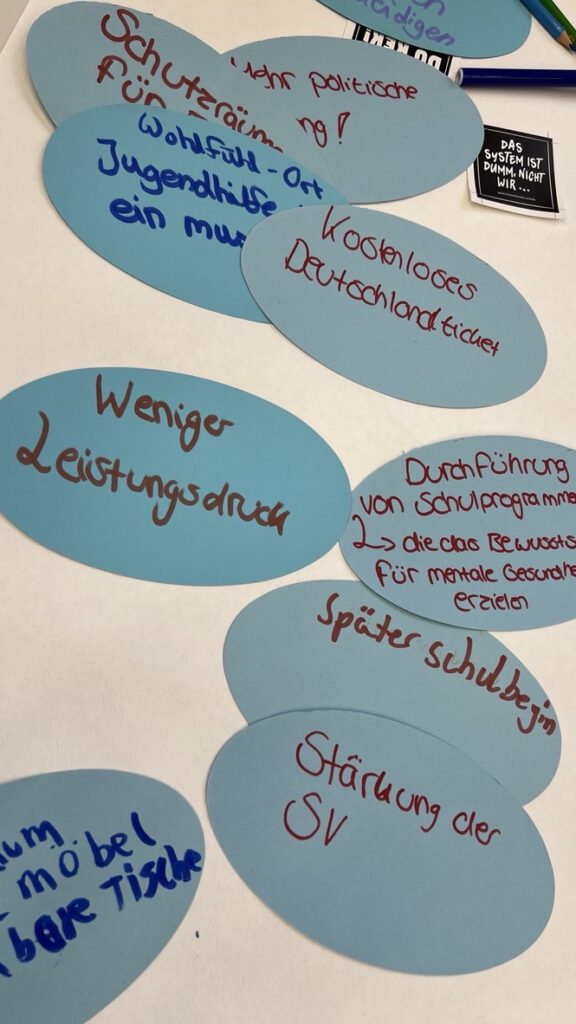 idigen
DU KEN
Schutzräum
für
Mehr politische
ng!
DAS
SYSTEM IST
DUMM, NICHT
WIR ...
Wohlfühl-Ort
Jugendhilfe
ein mus
Kostenloses
Deutschlandticket
Weniger
Leistungsdruck
Durchführung
von Schulprogramme
↳ die das Bewussts
für mentale Gesundhe
erzielen
Später schulbegin
Stärkung der
SV
um
möbel
bare Tische